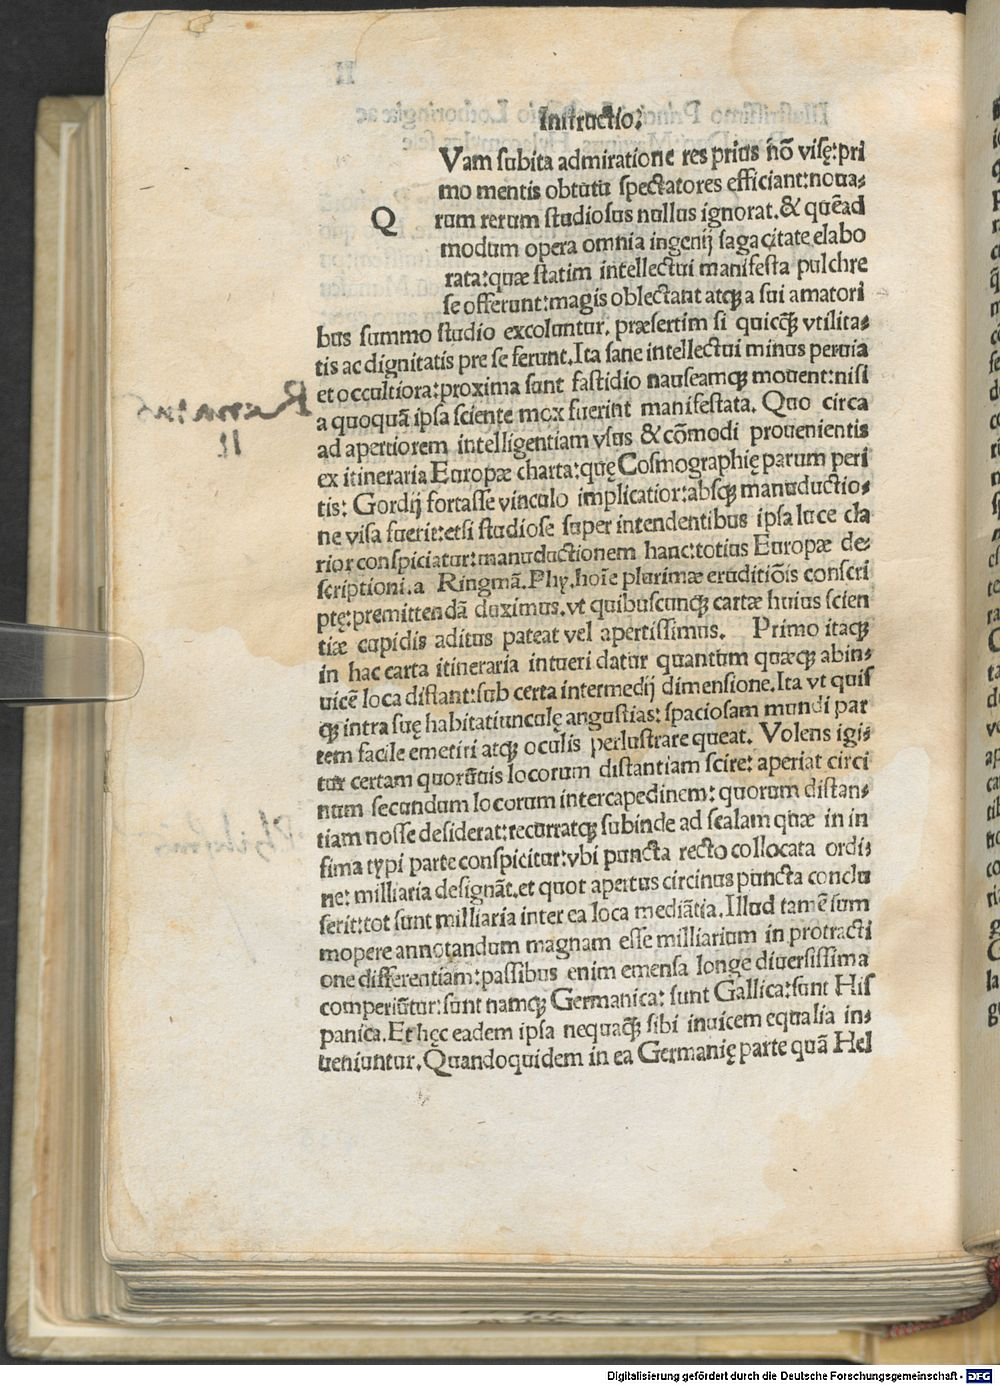 Instructio.
Vam subita admiratione res prius nõ visę:pri
mo mentis obtutu spectatores efficiant:noua-
Q rum rerum studiosus nullus ignorat.& quẽad
modum opera omnia ingenij sagacitate elabo
rata:quæ statim intellectui manifesta pulchre
se offerunt:magis oblectant atqꝫ a sui amatori
bus summo studio excoluntur. præsertim si quicqꝫ̃ vtilita-
tis ac dignitatis pre se ferunt.Ita sane intellectui minus peruia
et occultiora:proxima sunt fastidio nauseamqꝫ mouent:nisi
a quoquã ipsa sciente mox fuerint manifestata. Quo circa
ad apertiorem intelligentiam vsus & cõmodi prouenientis
ex itineraria Europæ charta:quę Cosmographię parum peri
tis: Gordij fortasse vinculo implicatior:absqꝫ manuductio-
ne visa fuerit:etsi studiose super intendentibus ipsa luce cla
rior conspiciatur:manuductionem hanc:totius Europæ de-
scriptioni.a Ringmã.Phy.hoĩe plurimæ eruditiõis conscri
ptę:premittendã duximus.vt quibuscunqꝫ cartæ huius scien
tiæ cupidis aditus pateat vel apertissimus. Primo itaqꝫ
in hac carta itineraria intueri datur quantum quæqꝫ abin-
uicẽ loca distant:sub certa intermedij dimensione.Ita vt quis
qꝫ intra suę habitatiunculę angustias: spaciosam mundi par
tem facile emetiri atqꝫ oculis perlustrare queat. Volens igi-
tur certam quorũuis locorum distantiam scire: aperiat circi
num secundum locorum intercapedinem: quorum distan-
tiam nosse desiderat:recurratqꝫ subinde ad scalam quæ in in
fima typi parte conspicitur:vbi puncta recto collocata ordi-
ne: milliaria designãt.et quot apertus circinus puncta conclu
serit:tot sunt milliaria inter ea loca mediãtia.Illud tamẽ sum
mopere annotandum magnam esse milliarium in protracti
one differentiam:passibus enim emensa longe diuersissima
comperiũtur:sunt namqꝫ Germanica: sunt Gallica:sunt His
panica.Et hęc eadem ipsa nequaqꝫ̃ sibi inuicem equalia in-
ueniuntur.Quandoquidem in ea Germanię parte quã Hel
Digitalisierung gefördert durch die Deutsche Forschungsgemeinschaft - DFG